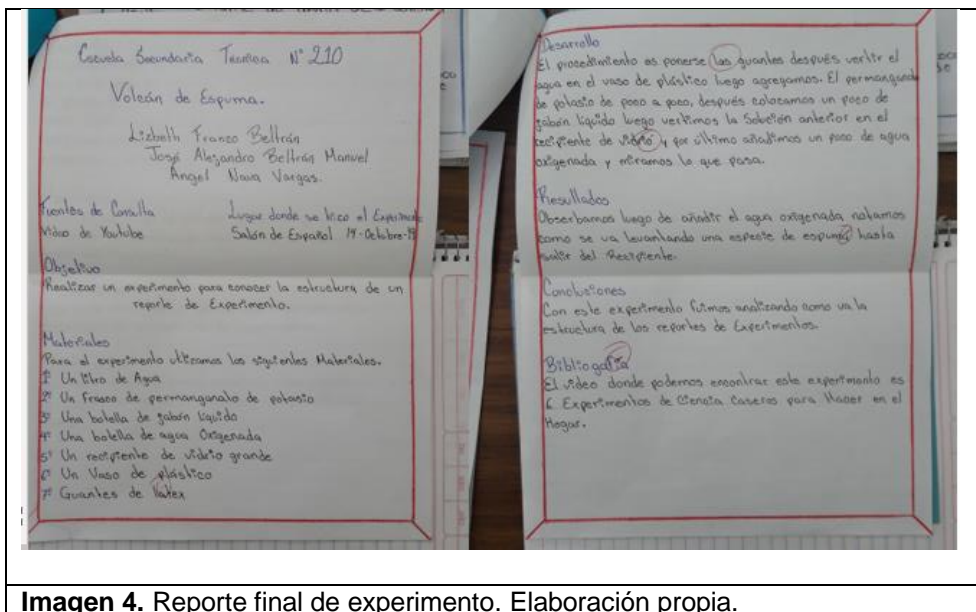 Escuela Secundaria Tecnica N° 210
Volcán de Espuma.
Lizbeth Franco Beltrán
José Alejandro Beltrán Manuel
Angel Nava Vargas.
Fuentes de Consulta
Video de Youtube
Lugar donde se hizo el Experimento
Salón de Español 14-Octubre-19
Objetivo
Realizar un experimento para conocer la estructura de un
reporte de Experimento.
Materiales
Para el experimento utilizamos los siguientes Materiales.
1° Un litro de Agua
2° Un Frasco de permanganato de potasio
3° Una botella de jabón líquido
4° Una botella de agua Oxigenada
5° Un recipiente de vidrio grande
6° Un Vaso de plástico
7° Guantes de latex
Desarrollo
El procedimiento es ponerse los guantes después vertir el
agua en el vaso de plástico luego agregamos. El permanganato
de potasio de poco a poco, después colocamos un poco de
jabón líquido luego vertimos la Solución anterior en el
recipiente de vidrio y por último añadimos un poco de agua
oxigenada y miramos lo que pasa.
Resultados
Obserbamos luego de añadir el agua oxigenada notamos
como se va levantando una especie de espuma hasta
salir del Recipiente.
Conclusiones
Con este experimento fuimos analizando como va la
estructura de los reportes de Experimentos.
Bibliografía
El video donde podemos encontrar este experimento es
6 Experimentos de Ciencia Caseros para Hacer en el
Hogar.
Imagen 4. Reporte final de experimento. Elaboración propia.